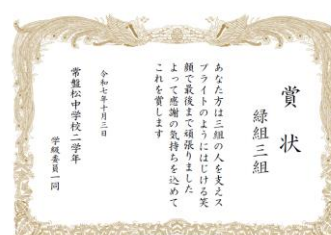 賞状
緑組三組
あなた方は三組の人を支えス
プライトのようにはじける笑
顔で最後まで頑張りました
よって感謝の気持ちを込めて
これを賞します
令和七年十月三日
常盤松中学校二学年
学級委員一同